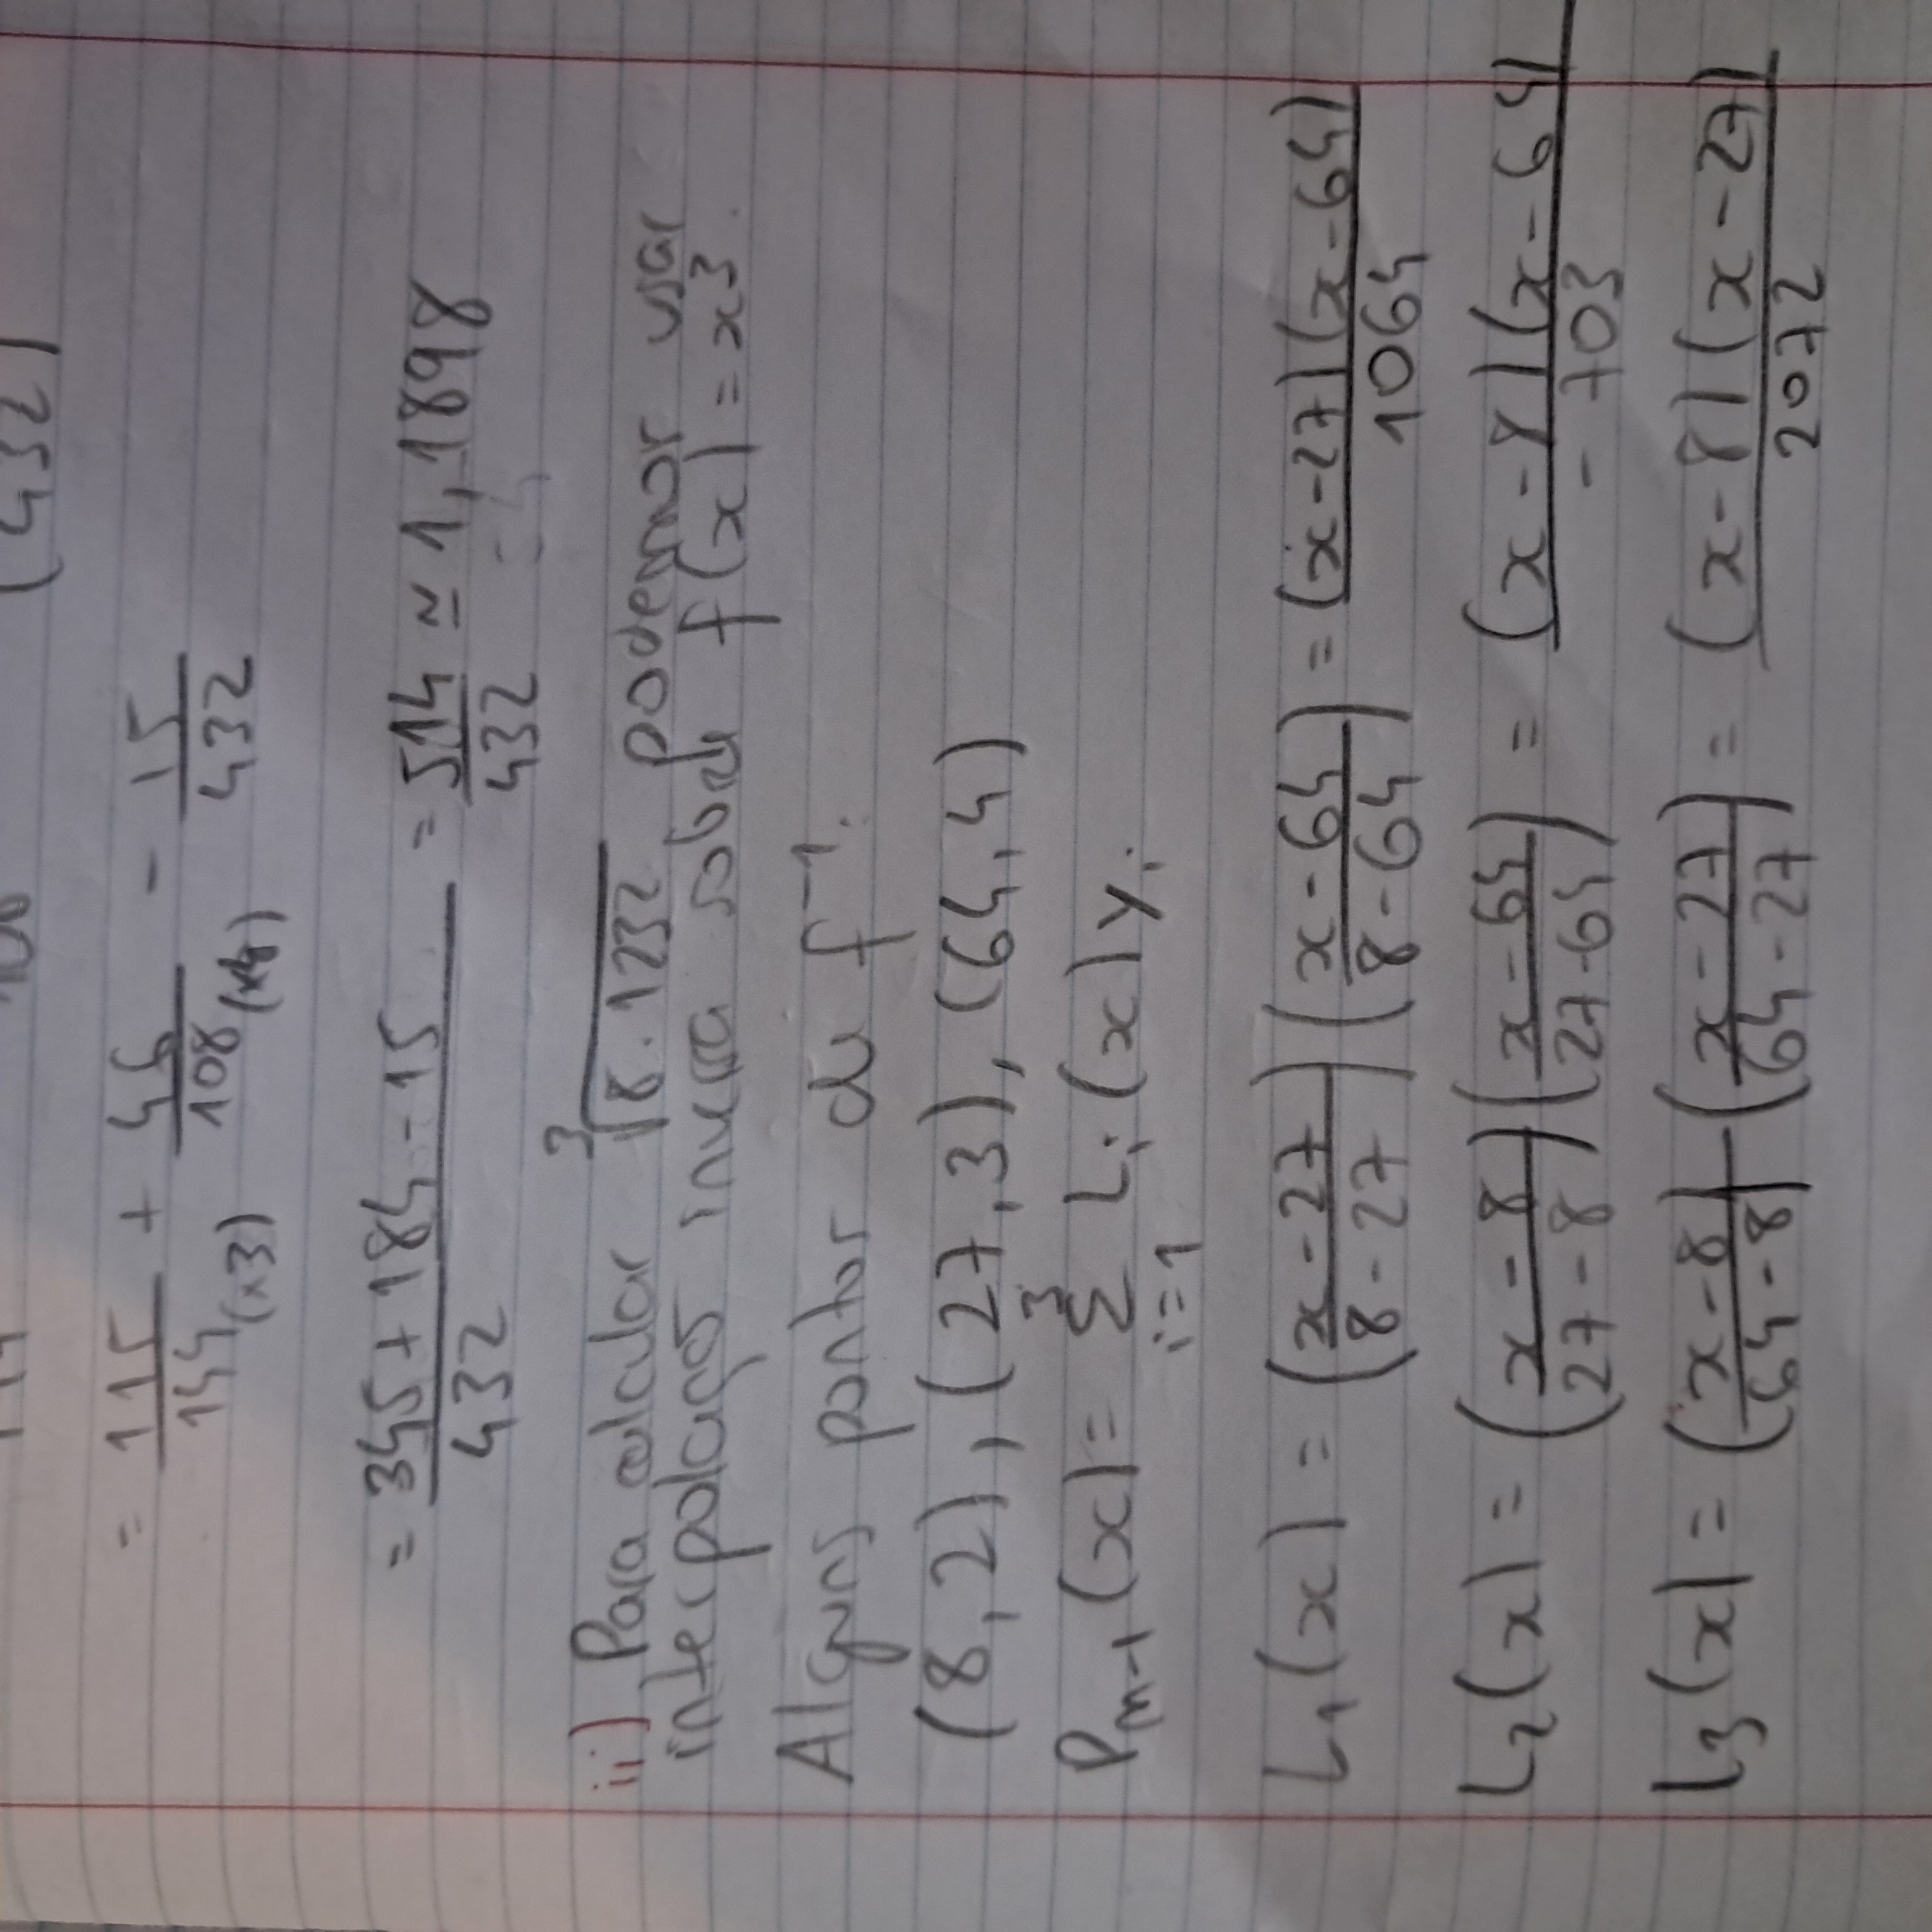 144 108 (432)
= 115/144 (x3) + 46/108 (x4) - 15/432
= (345 + 184 - 15)/432 = 514/432 ≃ 1,1898
ii) Para calcular ∛8.1232, podemos usar
interpolação inversa sobre f(x) = x³.
Alguns pontos de f⁻¹:
(8, 2), (27, 3), (64, 4)
Pn-1(x) = 3 Σ i=1 Li(x) yi
L1(x) = ((x-27)/(8-27)) ((x-64)/(8-64)) = (x-27)(x-64)/1064
L2(x) = ((x-8)/(27-8)) ((x-64)/(27-64)) = (x-8)(x-64)/-703
L3(x) = ((x-8)/(64-8)) ((x-27)/(64-27)) = (x-8)(x-27)/2072